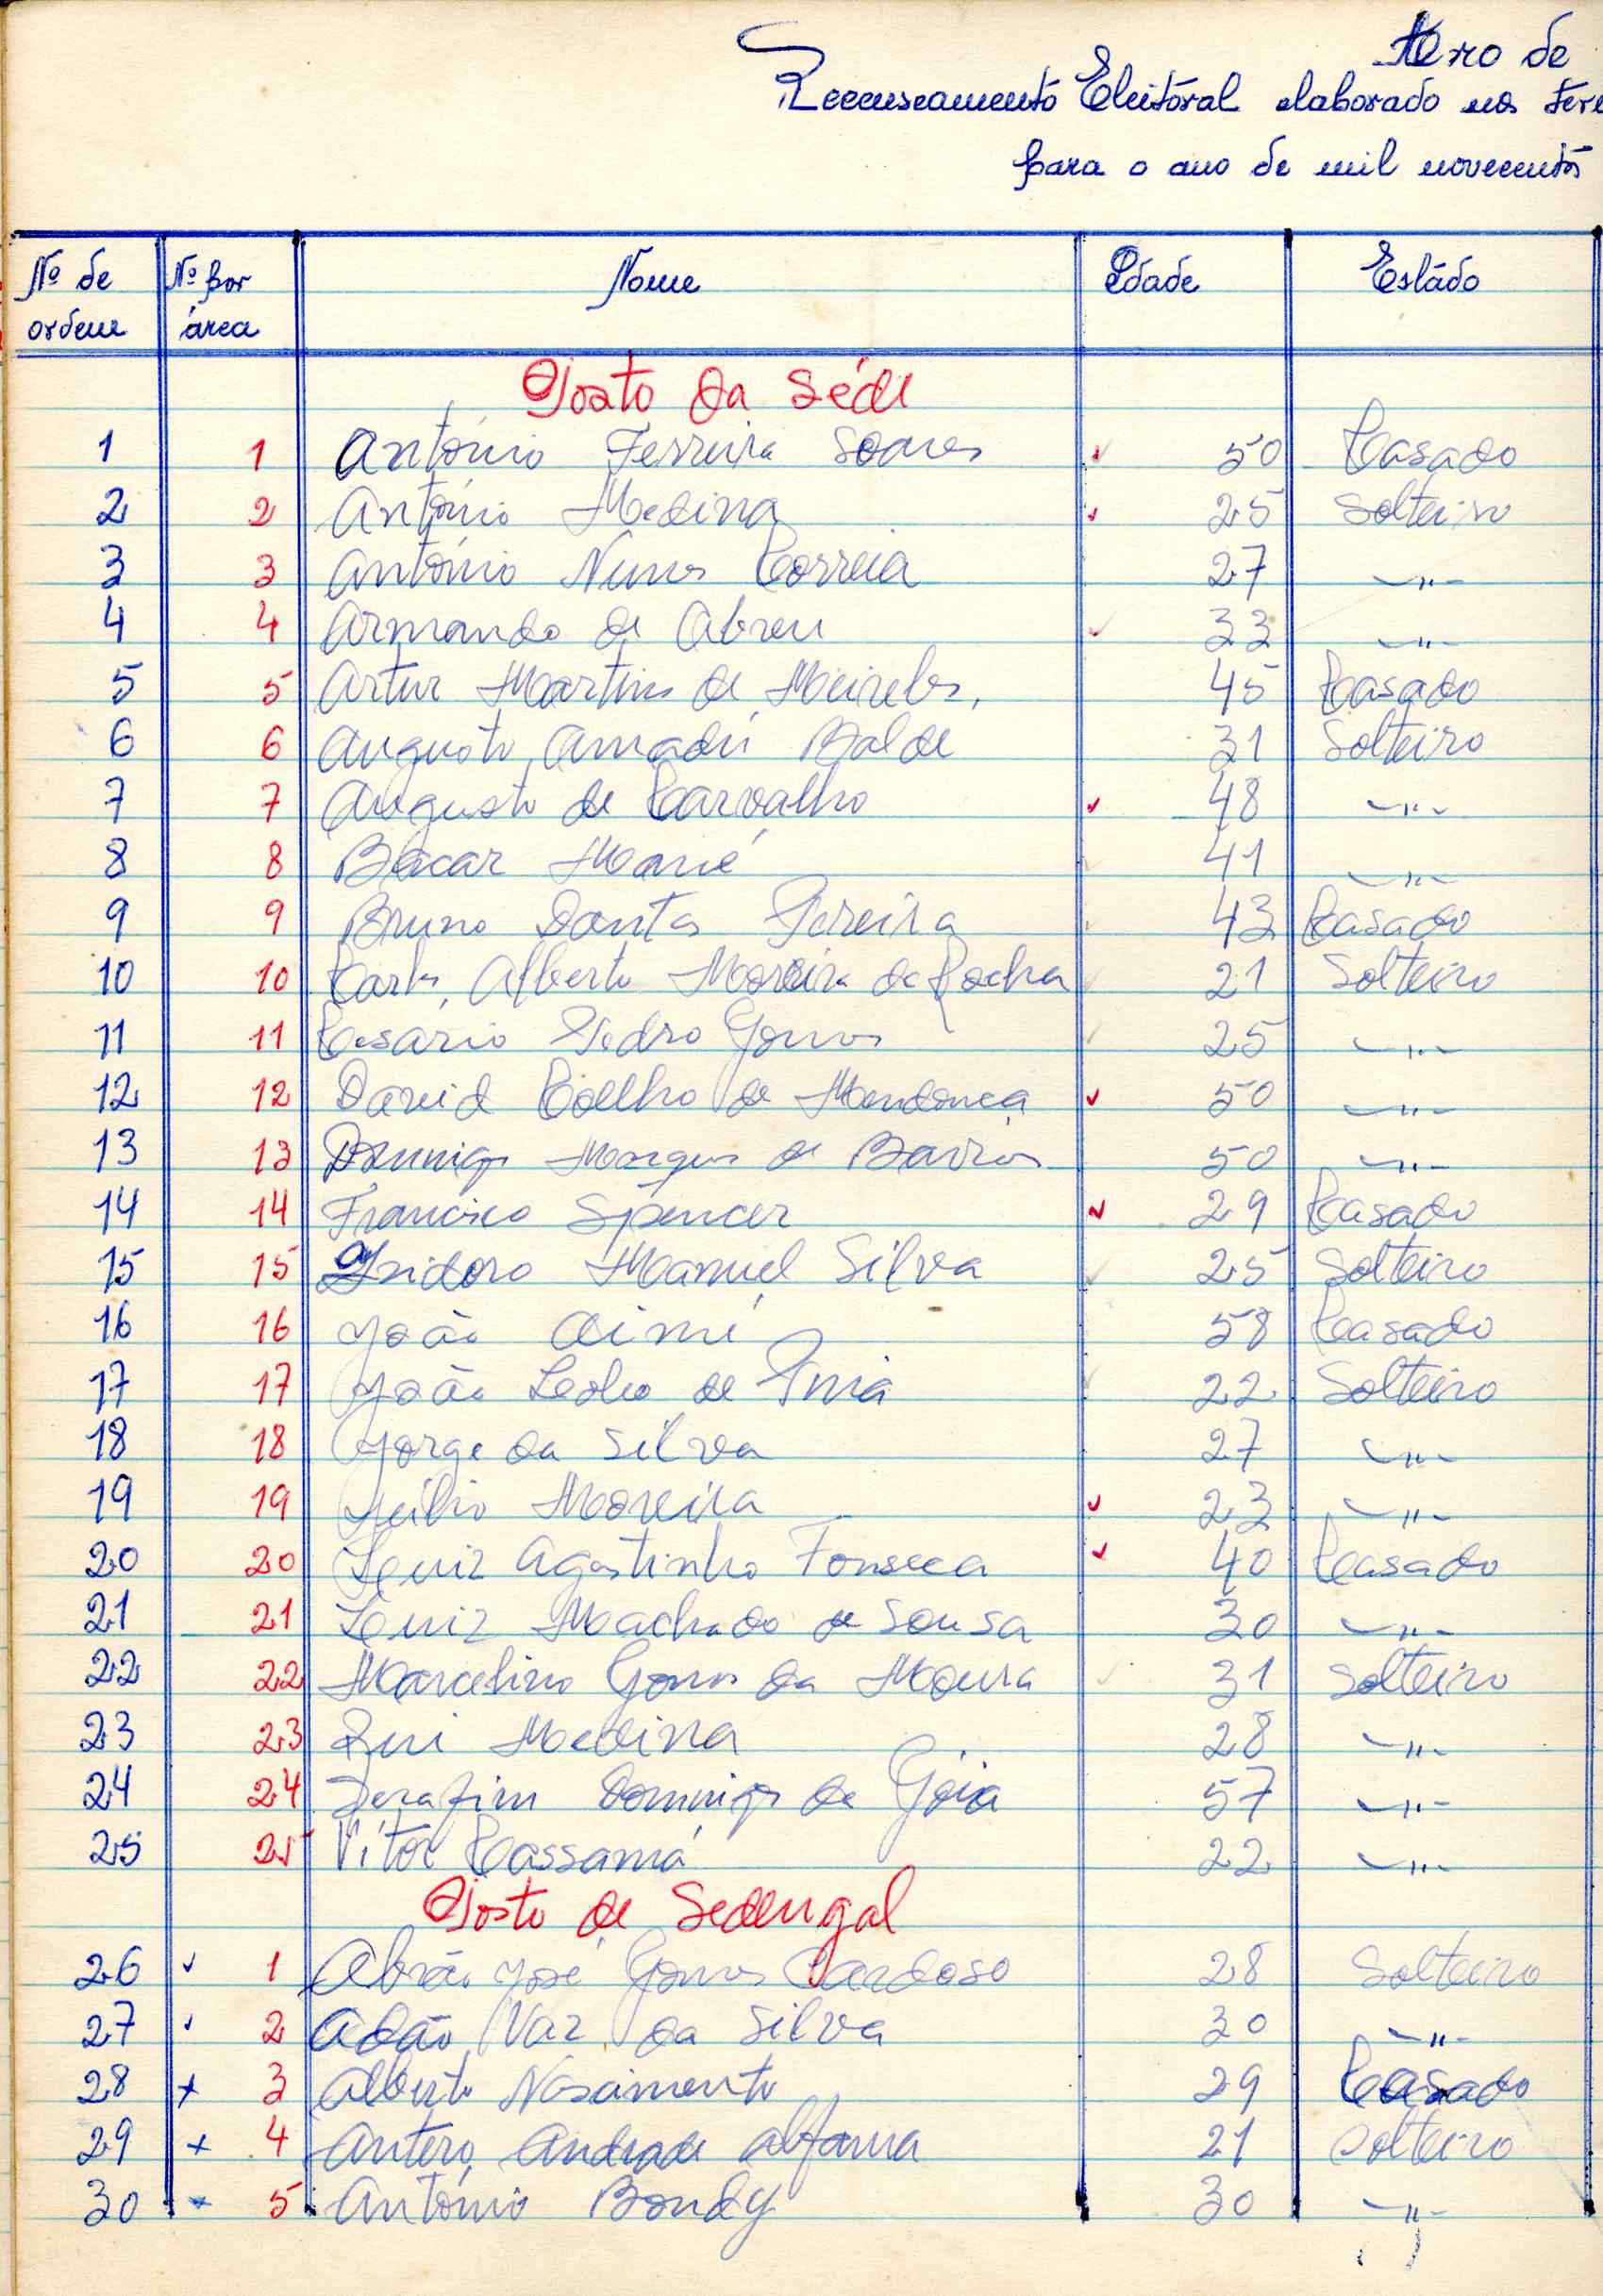 de
Recenseamento Eleitoral elaborado nos
para o ano de mil novecentos
Nº de ordem Nº por área Nome Idade Estado
Posto da Séde
1 1 António Ferreira Soares 50 Casado
2 2 António Medina 25 Solteiro
3 3 António Nunes Correia 27 —"—
4 4 Armando de Abreu 33 —"—
5 5 Artur Martins de Meireles, 45 Casado
6 6 Augusto Amadú Balde 31 Solteiro
7 7 Augusto de Carvalho 48 —"—
8 8 Bácar Mané 41 —"—
9 9 Bruno Dantas Pereira 43 Casado
10 10 Carlos Alberto Moreira da Rocha 21 Solteiro
11 11 Cesário Pedro Gomes 25 —"—
12 12 David Coelho de Mendonça 50 —"—
13 13 Domingos Marques de Barros 50 —"—
14 14 Francisco Spencer 29 Casado
15 15 Isidoro Manuel Silva 25 Solteiro
16 16 João 58 Casado
17 17 João de Pina 22 Solteiro
18 18 Jorge da Silva 27 —"—
19 19 Júlio Moreira 23 —"—
20 20 Luiz Agostinho Fonseca 40 Casado
21 21 Luiz Machado de Sousa 30 —"—
22 22 Marcelino Gomes da Moura 31 Solteiro
23 23 Rui Medina 28 —"—
24 24 Serafim Domingos de Góia 57 —"—
25 25 Vítor Cassamá 22 —"—
Posto de Sedengal
26 1 Abrão José Gomes Cardoso 28 Solteiro
27 2 Adão Vaz da Silva 30 —"—
28 x 3 Alberto Nascimento 29 Casado
29 x 4 Antero Andrade Alfama 21 Solteiro
30 x 5 António Bondy 30 —"—